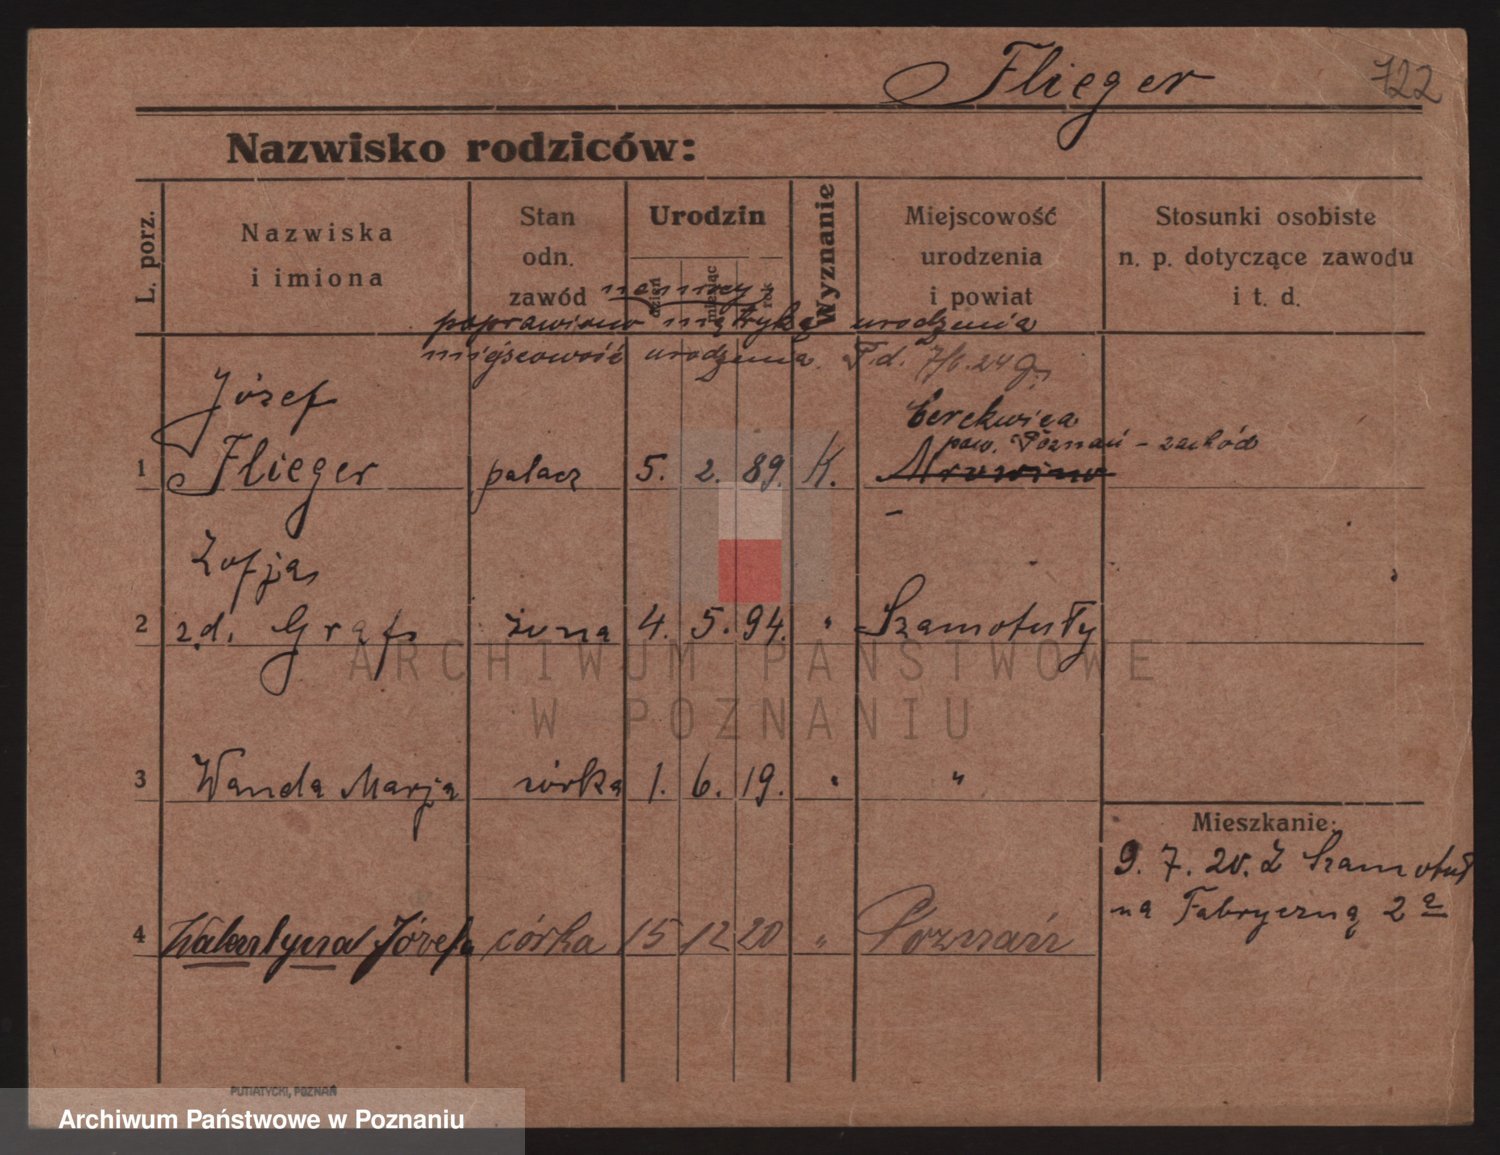 Flieger 722
Nazwisko rodziców:
L. porz.
Nazwiska
i imiona
Stan
odn.
zawód
Urodzin
dzień
miesiąc
rok
Wyznanie
Miejscowość
urodzenia
i powiat
Stosunki osobiste
n. p. dotyczące zawodu
i t. d.
poprawiono metryką urodzenia
miejscowość urodzenia. F. d. 7/6. 24
Józef
Cerekwica
pow. Poznań - zachód
1 Flieger palacz 5. 2. 89. K. Mrowino
Zofja
2 z d. Gräf żona 4. 5. 94. " Szamotuły
3 Wanda Marja córka 1. 6. 19. " "
Mieszkanie:
9. 7. 20. Z Szamotuł
na Fabryczną 2 a
4 Walentyna Józefa córka 15 12 20 " Poznań
PUTIATYCKI, POZNAŃ
ARCHIWUM PAŃSTWOWE
W POZNANIU
Archiwum Państwowe w Poznaniu